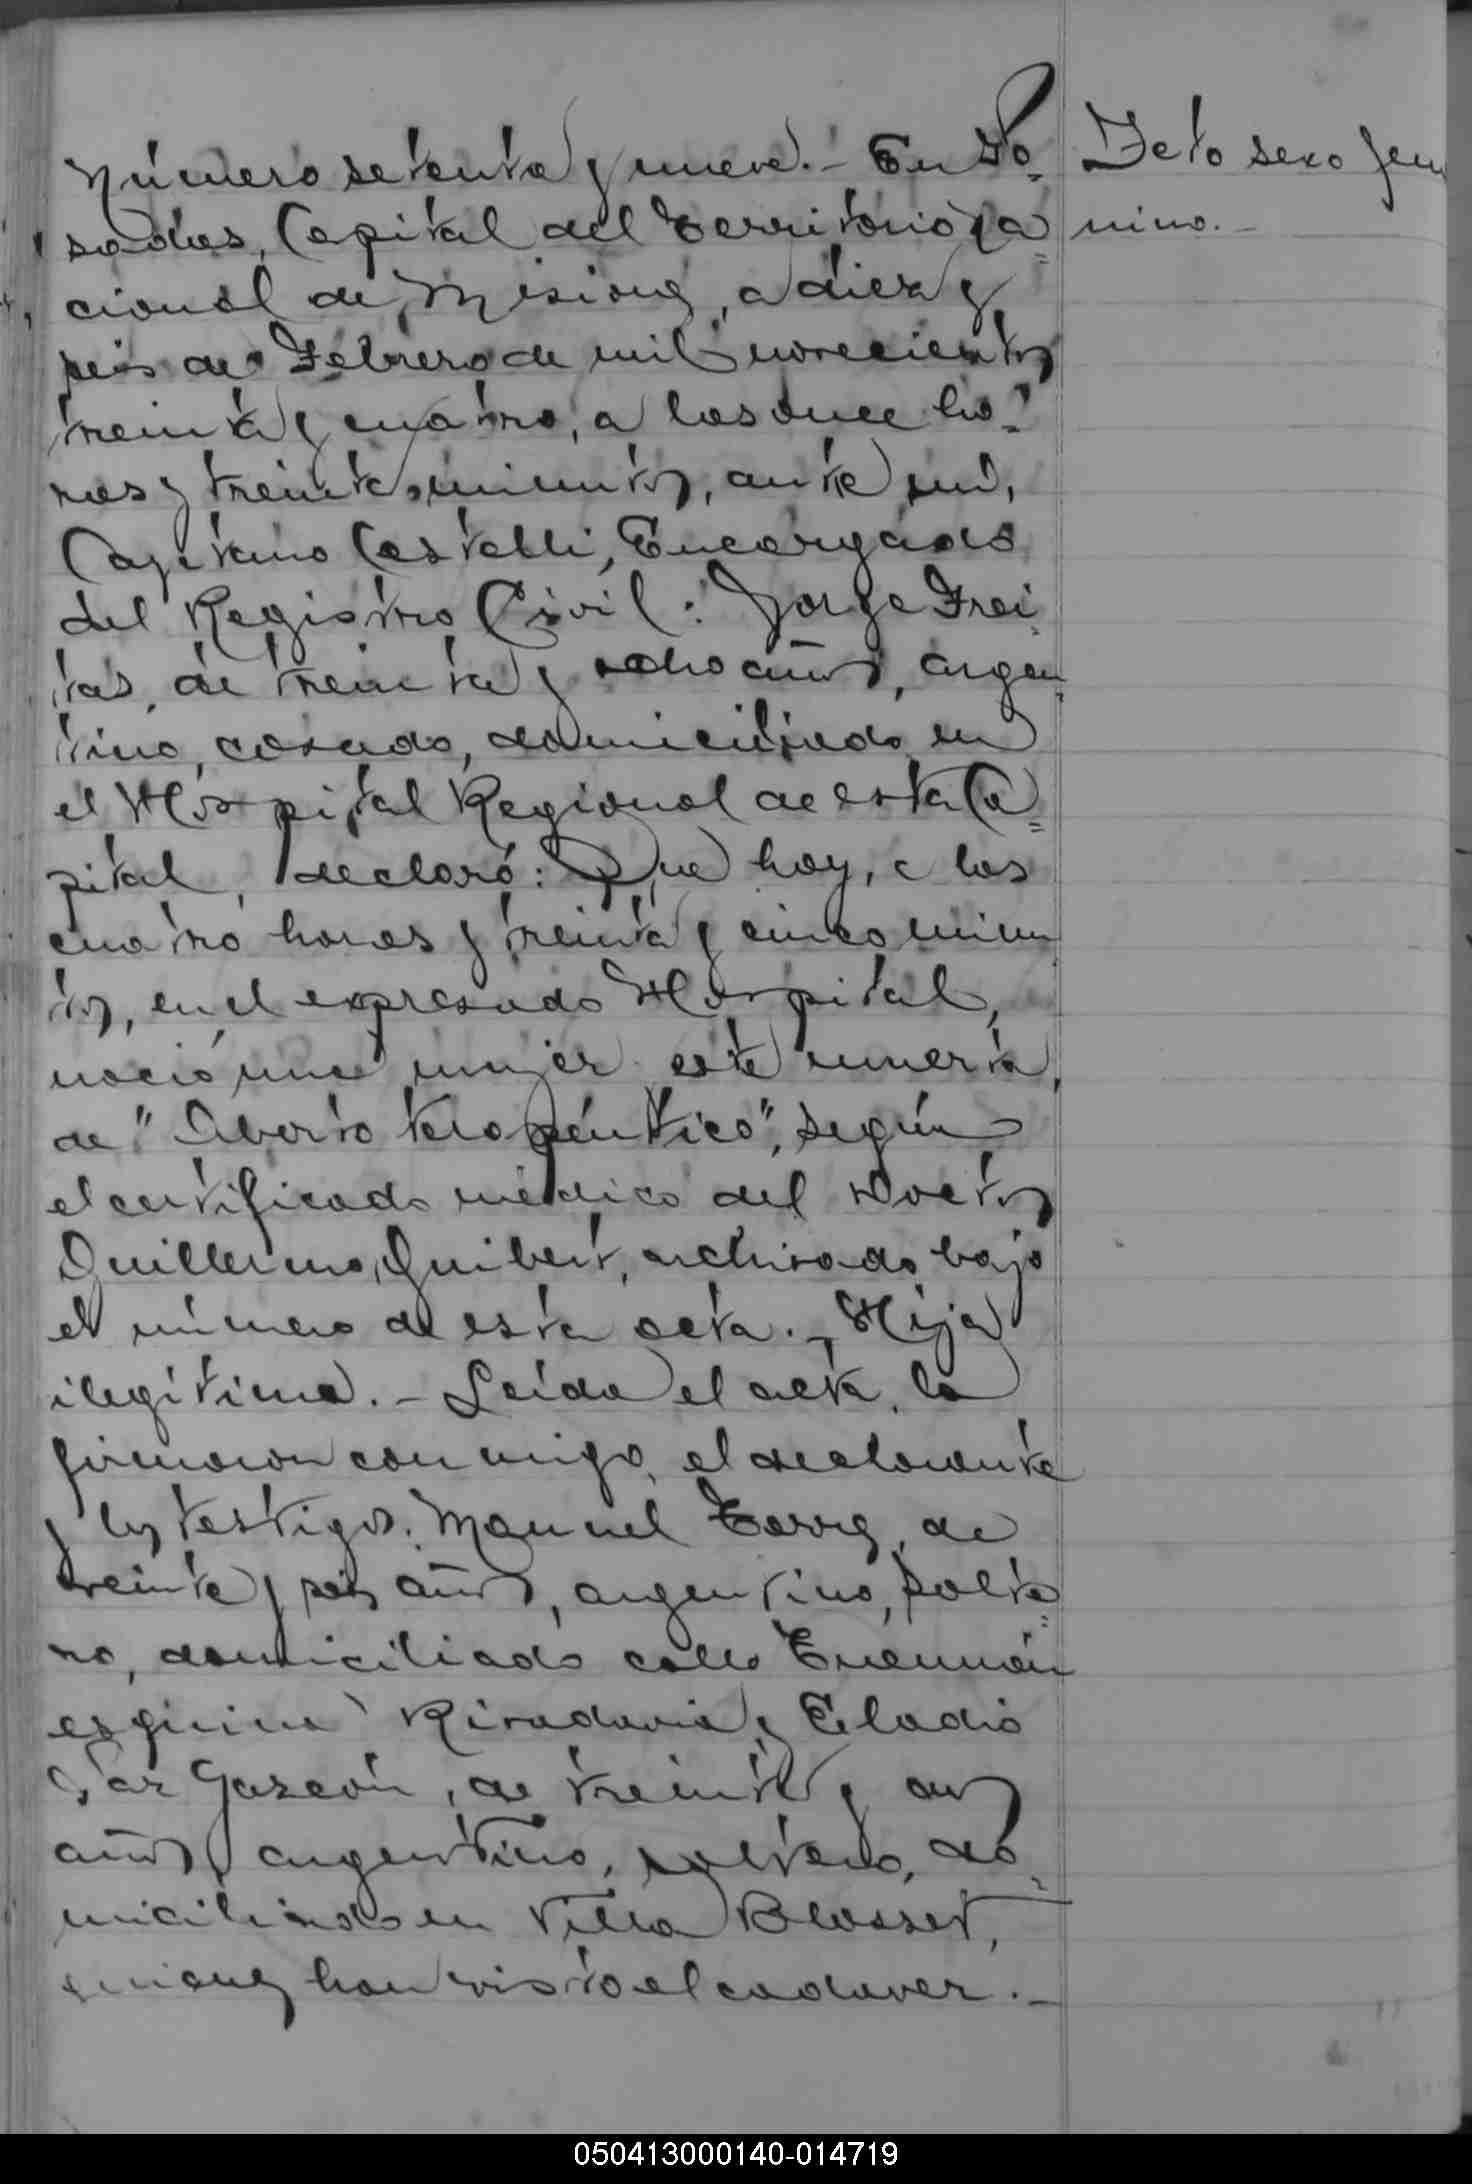 Número setenta y nueve.- En Po=
sadas, Capital del Territorio Na=
cional de Misiones, a diez y
seis de Febrero de mil novecientos
treinta y cuatro, a las once ho=
ras y treinta minutos, ante mí,
Cayetano Castelli, Encargado
del Registro Civil: Jorge Frei
tas, de treinta y ocho años, argen=
tino, casado, domiciliado en
el Hospital Regional de esta Ca=
pital, declaró: Que hoy, a las
cuatro horas y treinta y cinco minu
tos, en el expresado Hospital,
nació una mujer muerta,
de "Aborto terapéutico", según
el certificado médico del Doctor
Guillermo Guibert, archivado bajo
el número de esta acta.- Hija
ilegítima.- Leída el acta, la
firmaron conmigo, el declarante
y los testigos: Manuel Torres, de
treinta y seis años, argentino, solte=
ro, domiciliado calle Tucumán
esquina Rivadavia y Eladio
Gascón, de treinta y dos
años, argentino, soltero, do=
miciliado en Villa Blosset,
quienes han visto el cadaver.-
Feto sexo feme
nino.-
050413000140-014719